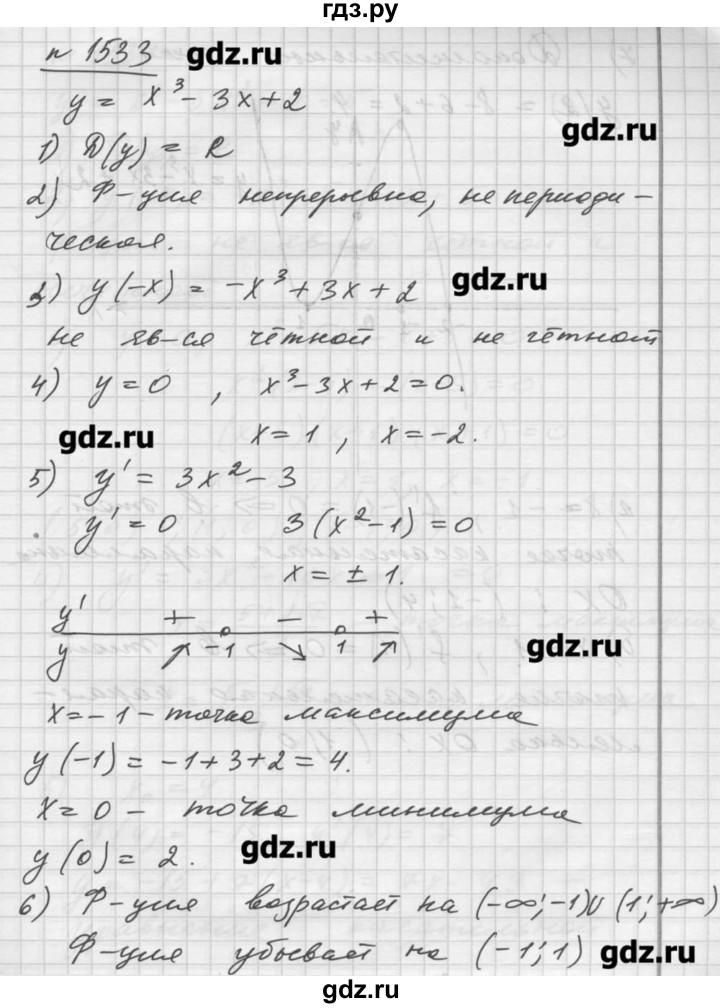 гдз.ру
n 1533 gdz.ru
y = x³ - 3x + 2
gdz.ru
1) D(y) = R
2) Ф-ция непрерывна, не периоди-
ческая.
3) y(-x) = -x³ + 3x + 2 gdz.ru
не яв-ся чётной и не чётной
4) y = 0 , x³ - 3x + 2 = 0.
gdz.ru x = 1 , x = -2.
5) y' = 3x² - 3
y' = 0 3(x² - 1) = 0
x = ± 1.
y' + - +
y ↗ -1 ↘ 1 ↗ gdz.ru
x = -1 - точка максимума
y(-1) = -1 + 3 + 2 = 4.
x = 0 - точка минимума
y(0) = 2. gdz.ru
6) Ф-ция возрастает на (-∞; -1)U(1; +∞)
Ф-ция убывает на (-1; 1) gdz.ru
гдз.ру